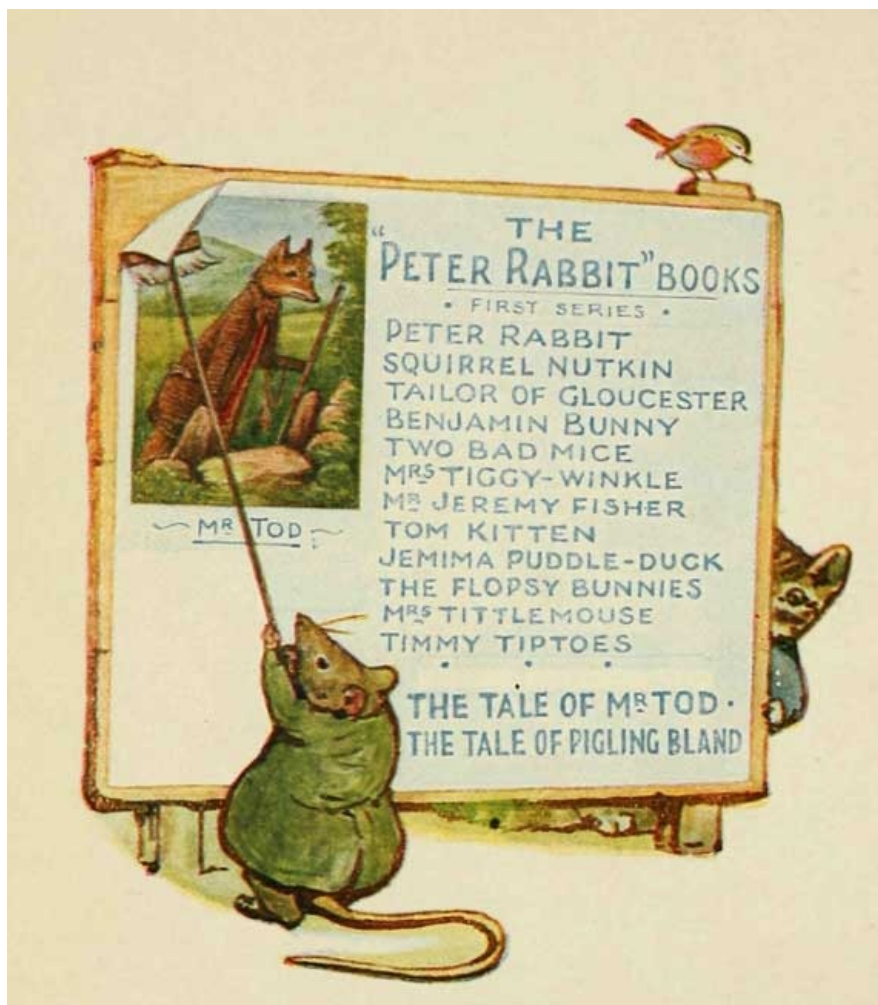 THE
"PETER RABBIT" BOOKS
• FIRST SERIES •
PETER RABBIT
SQUIRREL NUTKIN
TAILOR OF GLOUCESTER
BENJAMIN BUNNY
TWO BAD MICE
MRS TIGGY-WINKLE
MR JEREMY FISHER
TOM KITTEN
JEMIMA PUDDLE-DUCK
THE FLOPSY BUNNIES
MRS TITTLEMOUSE
TIMMY TIPTOES
THE TALE OF MR TOD •
THE TALE OF PIGLING BLAND
~ MR TOD ~